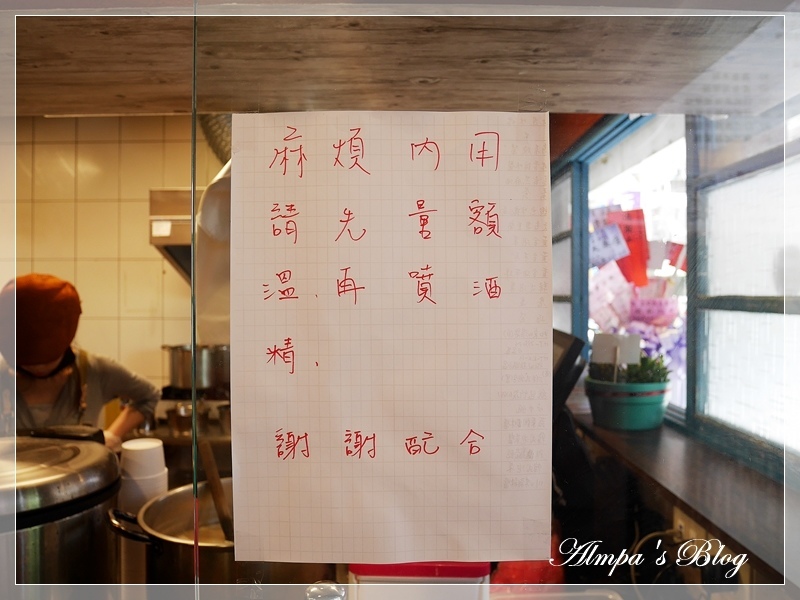 麻煩內用
請先量額
溫.再噴酒
精.
謝謝配合
Almpa's Blog